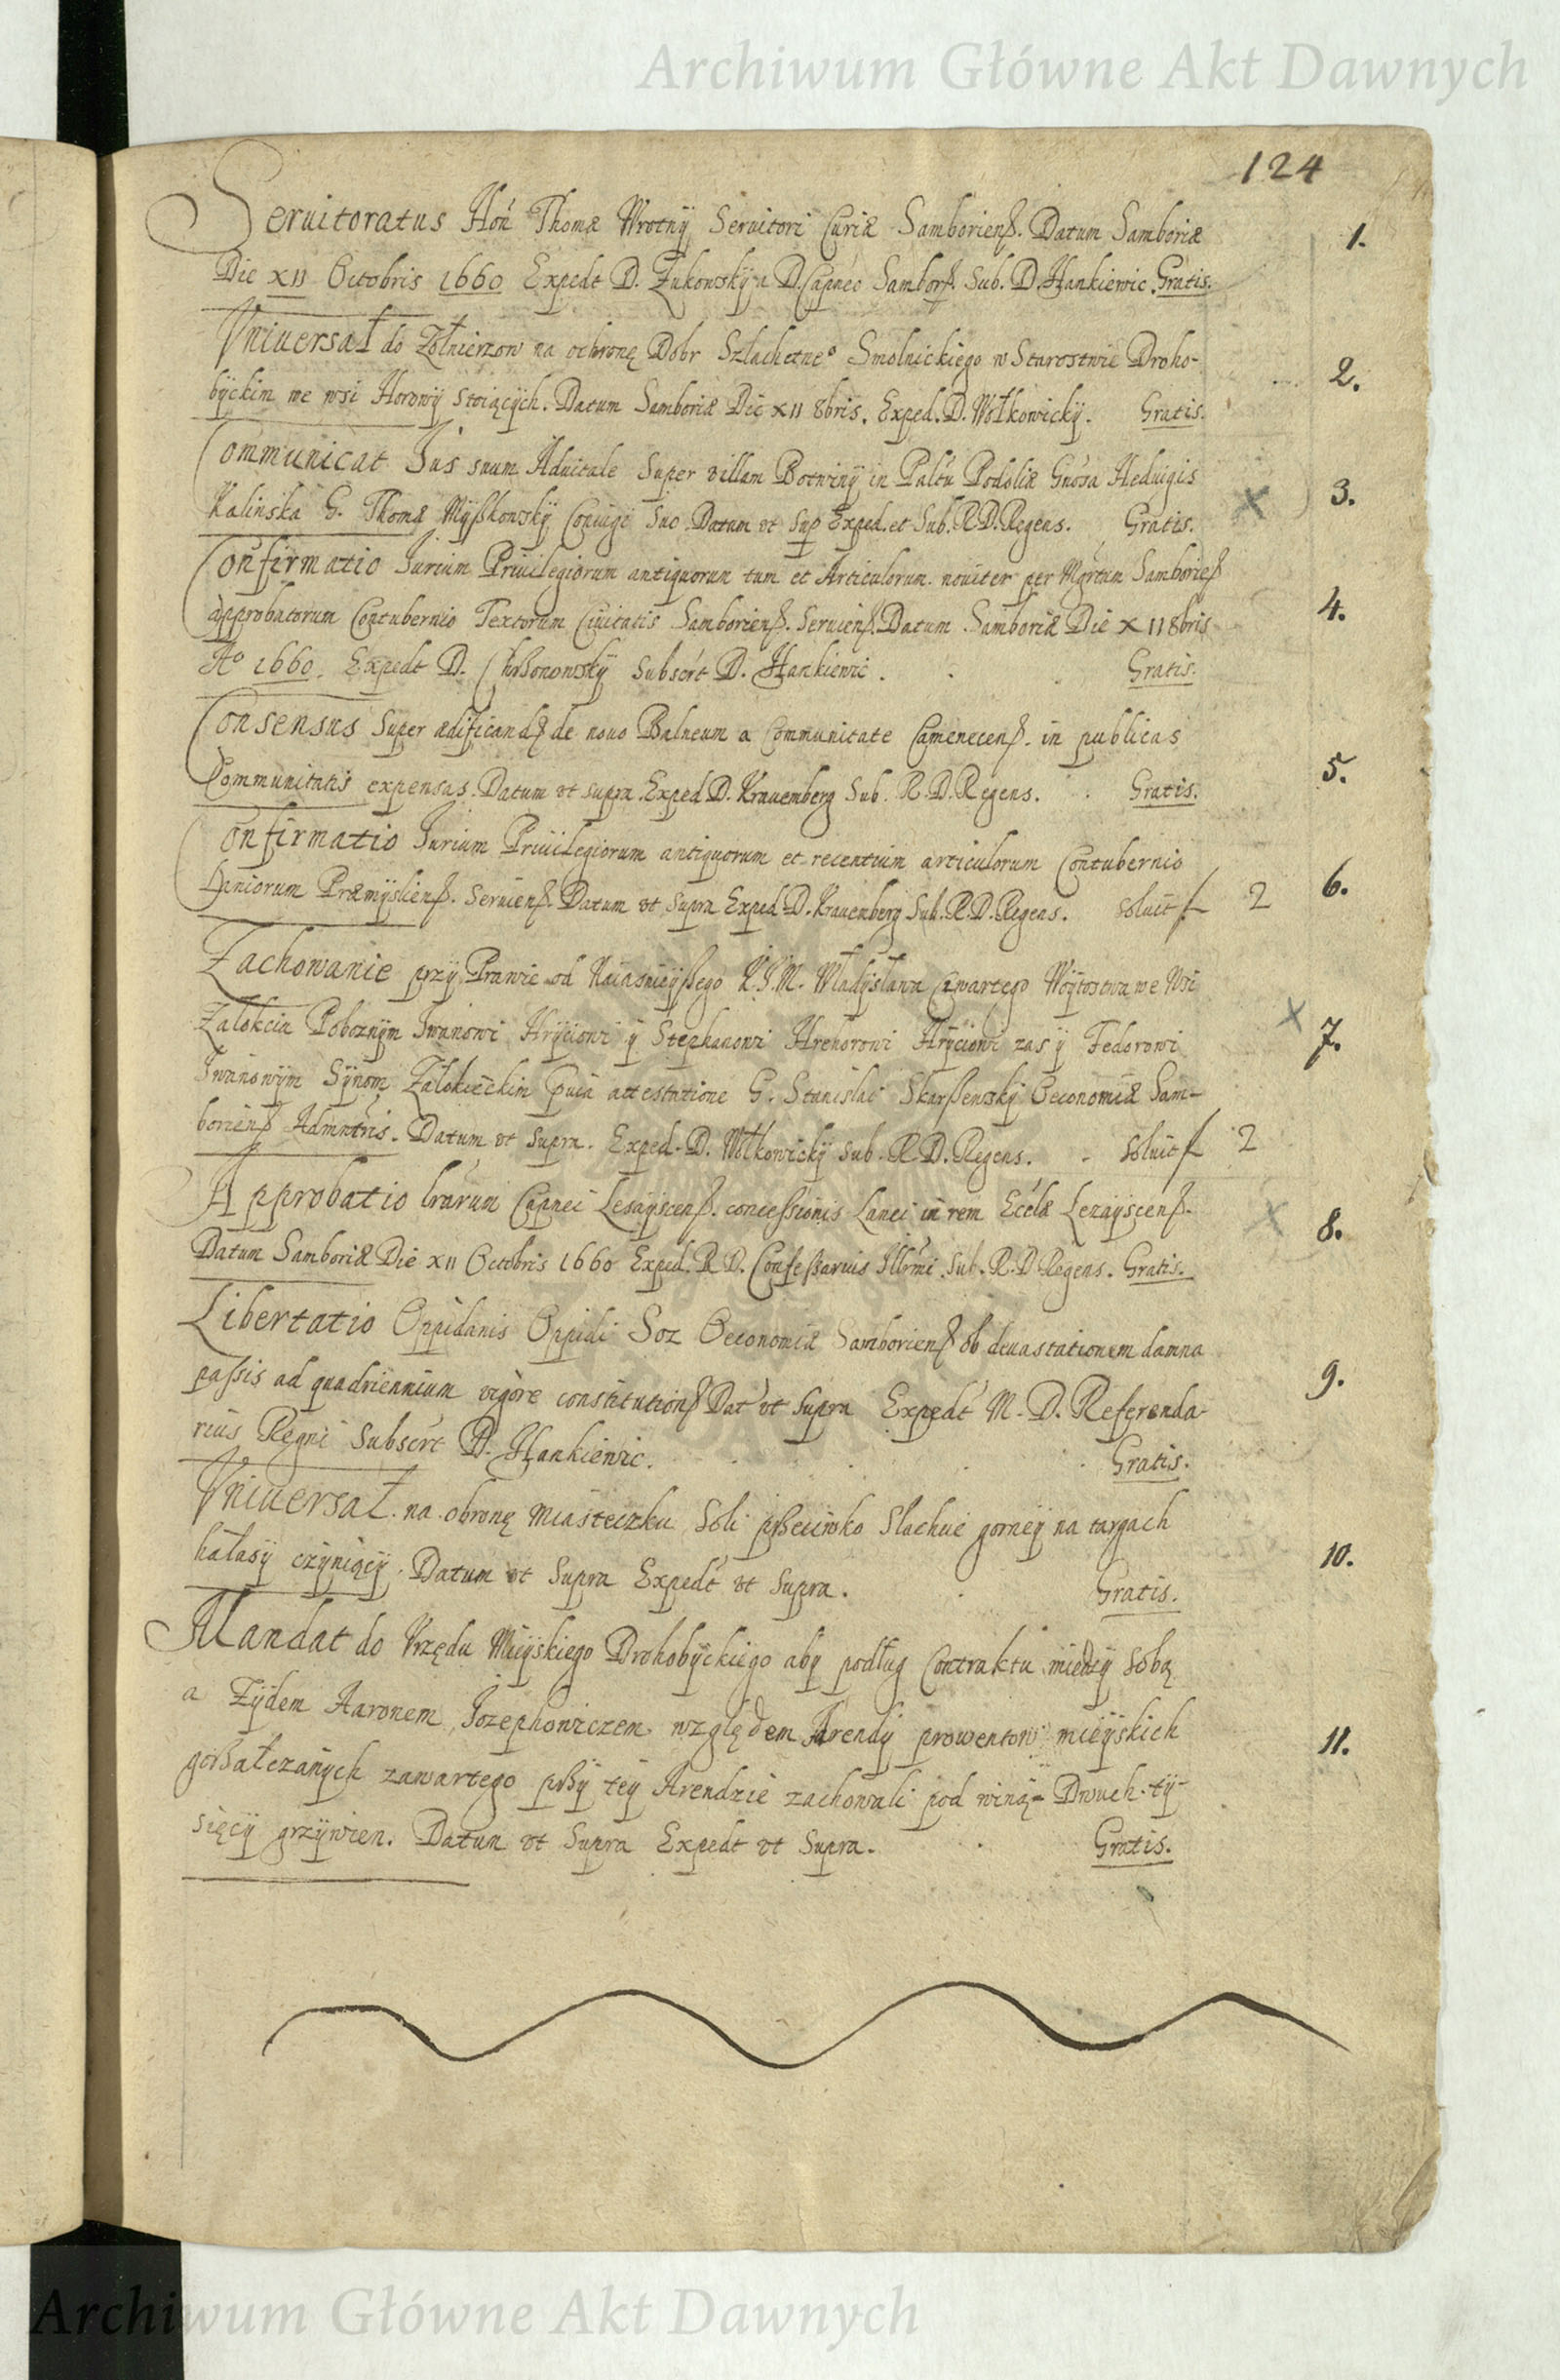 Archiwum Główne Akt Dawnych
124
Seruitoratus Hon Thomæ Wrotny Seruitori Curiæ Samboriensß. Datum Samboriæ 1.
Die XII Octobris 1660 Expedt D. Zukowsky a D. Capneo Samborß. Sub. D. Hankiewic. Gratis.
Vniuersał do Żołnierzow na ochronę Dobr Szlachetneo Smolnickiego w Starostwie Droho- 2.
byckim we wsi Horowy stoiących. Datum Samboriæ Die XII 8bris. Exped. D. Wołkowicky. Gratis.
Communicat Jus suum Aduitale Super villam Botwiny in Paltu Podoliæ Gnosa Heduigis
Kalinska G. Thomæ Myßkowsky Coniugi suo. Datum vt sup Exped. et Sub. R. D. Regens. Gratis. X 3.
Confirmatio Jurium Priuilegiorum antiquorum tum et Articulorum nouiter per Mgrtum Samborieß
approbatorum Contubernio Textorum Ciuitatis Samborienß. Seruienß. Datum Samboriæ Die XII 8bris 4.
Ao 1660. Expedt D. Chrßonowsky Subscrt D. Hankiewic. Gratis.
Consensus Super ædificandß de nouo Balneum a Communitate Camenecenß. in publicas
Communitatis expensas. Datum vt supra. Exped D. Krauemberg Sub. R. D. Regens. Gratis. 5.
Confirmatio Jurium Priuilegiorum antiquorum et recentium articulorum Contubernio
Præmyslienß. Seruienß. Datum vt Supra Exped D. Krauemberg Sub. R. D. Regens. Soluit f 2 6.
Zachowanie przy Prawie od Naiasnieyßego K. J. M. Władysława Czwartego Woytostwa we Wsi
Załokcia Pobocznym Iwanowi Hryciowi y Stephanowi Hrehorowi Hryciowi zas y Fedorowi X 7.
Iwanowym Synom Załokieckim Præuia attestatione G. Stanislai Skarßewsky Oeconomiæ Sam-
borienß Admntris. Datum vt Supra. Exped. D. Wołkowicky Sub. R. D. Regens. Soluit f 2
Approbatio lrarum Capnei Lesayscenß. conceßionis Lanei in rem Eccłæ Lezayscenß. X 8.
Datum Samboriæ Die XII Octobris 1660 Exped. R. D. Confeßarius Illrmi. Sub. R. D. Regens. Gratis.
Libertatio Oppidanis Oppidi Soz Oeconomiæ Samborienß ob deuastationem damna
paßis ad quadriennium vigore constitutionß Dat vt Supra Expedt M. D. Referenda- 9.
rius Regni Subscrt D. Hankiewic. Gratis.
Vniuersał na obronę Miasteczku Soli przeciwko Slachcie gorney na targach
hałasy czyniący. Datum vt Supra Expedt vt Supra. Gratis. 10.
Mandat do Vrzędu Mieyskiego Drohobyckiego aby podług Contraktu miedzy Sobą
a Zydem Aaronem Jozephowiczem względem Arendy prowentow mieyskich
gorßałczanych zawartego przy tey Arendzie zachowali pod winą Dwuch ty- 11.
sięcy grzywien. Datum vt Supra Expedt vt Supra. Gratis.
Archiwum Główne Akt Dawnych